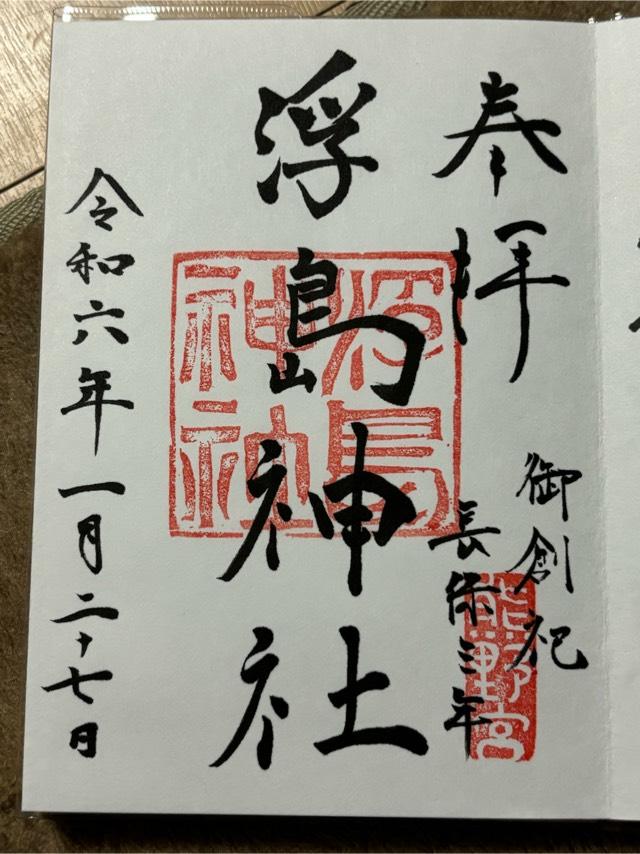 奉拝
御創祀
長保三年
熊野宮
浮島神社
浮島
神社
令和六年一月二十七日